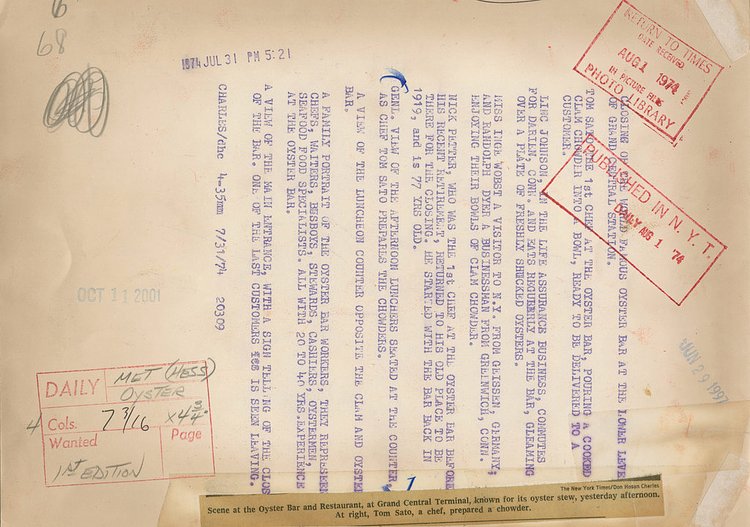 6
68
1974 JUL 31 PM 5:21
RETURN TO TIMES
DATE RECEIVED
AUG 1 1974
IN PICTURE FILES
PHOTO LIBRARY
PUBLISHED IN N. Y. T.
DAILY AUG 1 '74
JUN 29 1997
OCT 11 2001
CLOSING OF THE WORLD FAMOUS OYSTER BAR AT THE LOWER LEVE
OF GRAND CENTRAL STATION.
TOM SATO THE 1st CHEF AT THE OYSTER BAR, POURING A COOKED
CLAM CHOWDER INTO A BOWL, READY TO BE DELIVERED TO A
CUSTOMER.
JOHNSON IN THE LIFE ASSURANCE BUSINESS, COMMUTES
FOR DARIEN, CONN. AND EATS REGUBERLY AT THE BAR, GLEAMING
OVER A PLATE OF FRESHLY SHUCKED OYSTERS.
MISS INGE WOBST A VISITOR TO N.Y. FROM GEISSEN, GERMANY,
AND RANDOLPH DYER A BUSINESSMAN FROM GREENWICH, CONN.
ENJOYING THEIR BOWLS OF CLAM CHOWDER.
NICK PETTER, WHO WAS THE 1st CHEF AT THE OYSTER BAR BEFORE
HIS RECENT RETIREMENT, RETURNED TO HIS OLD PLACE TO BE
THERE FOR THE CLOSING. HE STARTED WITH THE BAR BACK IN
1919, and is 77 YRS OLD.
GENL. VIEW OF THE AFTERNOON LUNCHERS SEATED AT THE COUNTER
AS CHEF TOM SATO PREPARES THE CHOWDERS.
A VIEW OF THE LUNCHEON COUNTER OPPOSITE THE CLAM AND OYSTE
BAR.
A FAMILY PORTRAIT OF THE OYSTER BAR WORKERS. THEY REPRESEN
CHEFS, WAITERS, BUSBOYS, STEWARDS, CASHIERS, OYSTERMEN,
SEAFOOD FOOD SPECIALISTS. ALL WITH 20 TO 40 YRS.EXPERIENCE
AT THE OYSTER BAR.
A VIEW OF THE MAIN ENTRANCE, WITH A SIGN TELLING OF THE CLOS
OF THE BAR. ONE OF THE LAST CUSTOMERS IS SEEN LEAVING.
CHARLES/dhc 4-35mm 7/31/74 20309
DAILY MET (HESS)
OYSTER
4 Cols. 7 3/16 x 4 3/4
Wanted Page
1ST EDITION
1
The New York Times/Don Hogan Charles
Scene at the Oyster Bar and Restaurant, at Grand Central Terminal, known for its oyster stew, yesterday afternoon.
At right, Tom Sato, a chef, prepared a chowder.